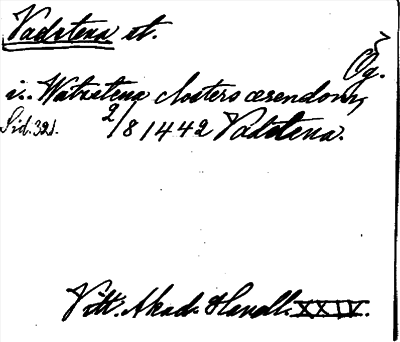 Vadstena st.
Ög.
i.. Watzstena closters ærendom,
Sid. 321. 2/8 1442 Vadstena.
Vitt. Akad. Handl. XXIV.